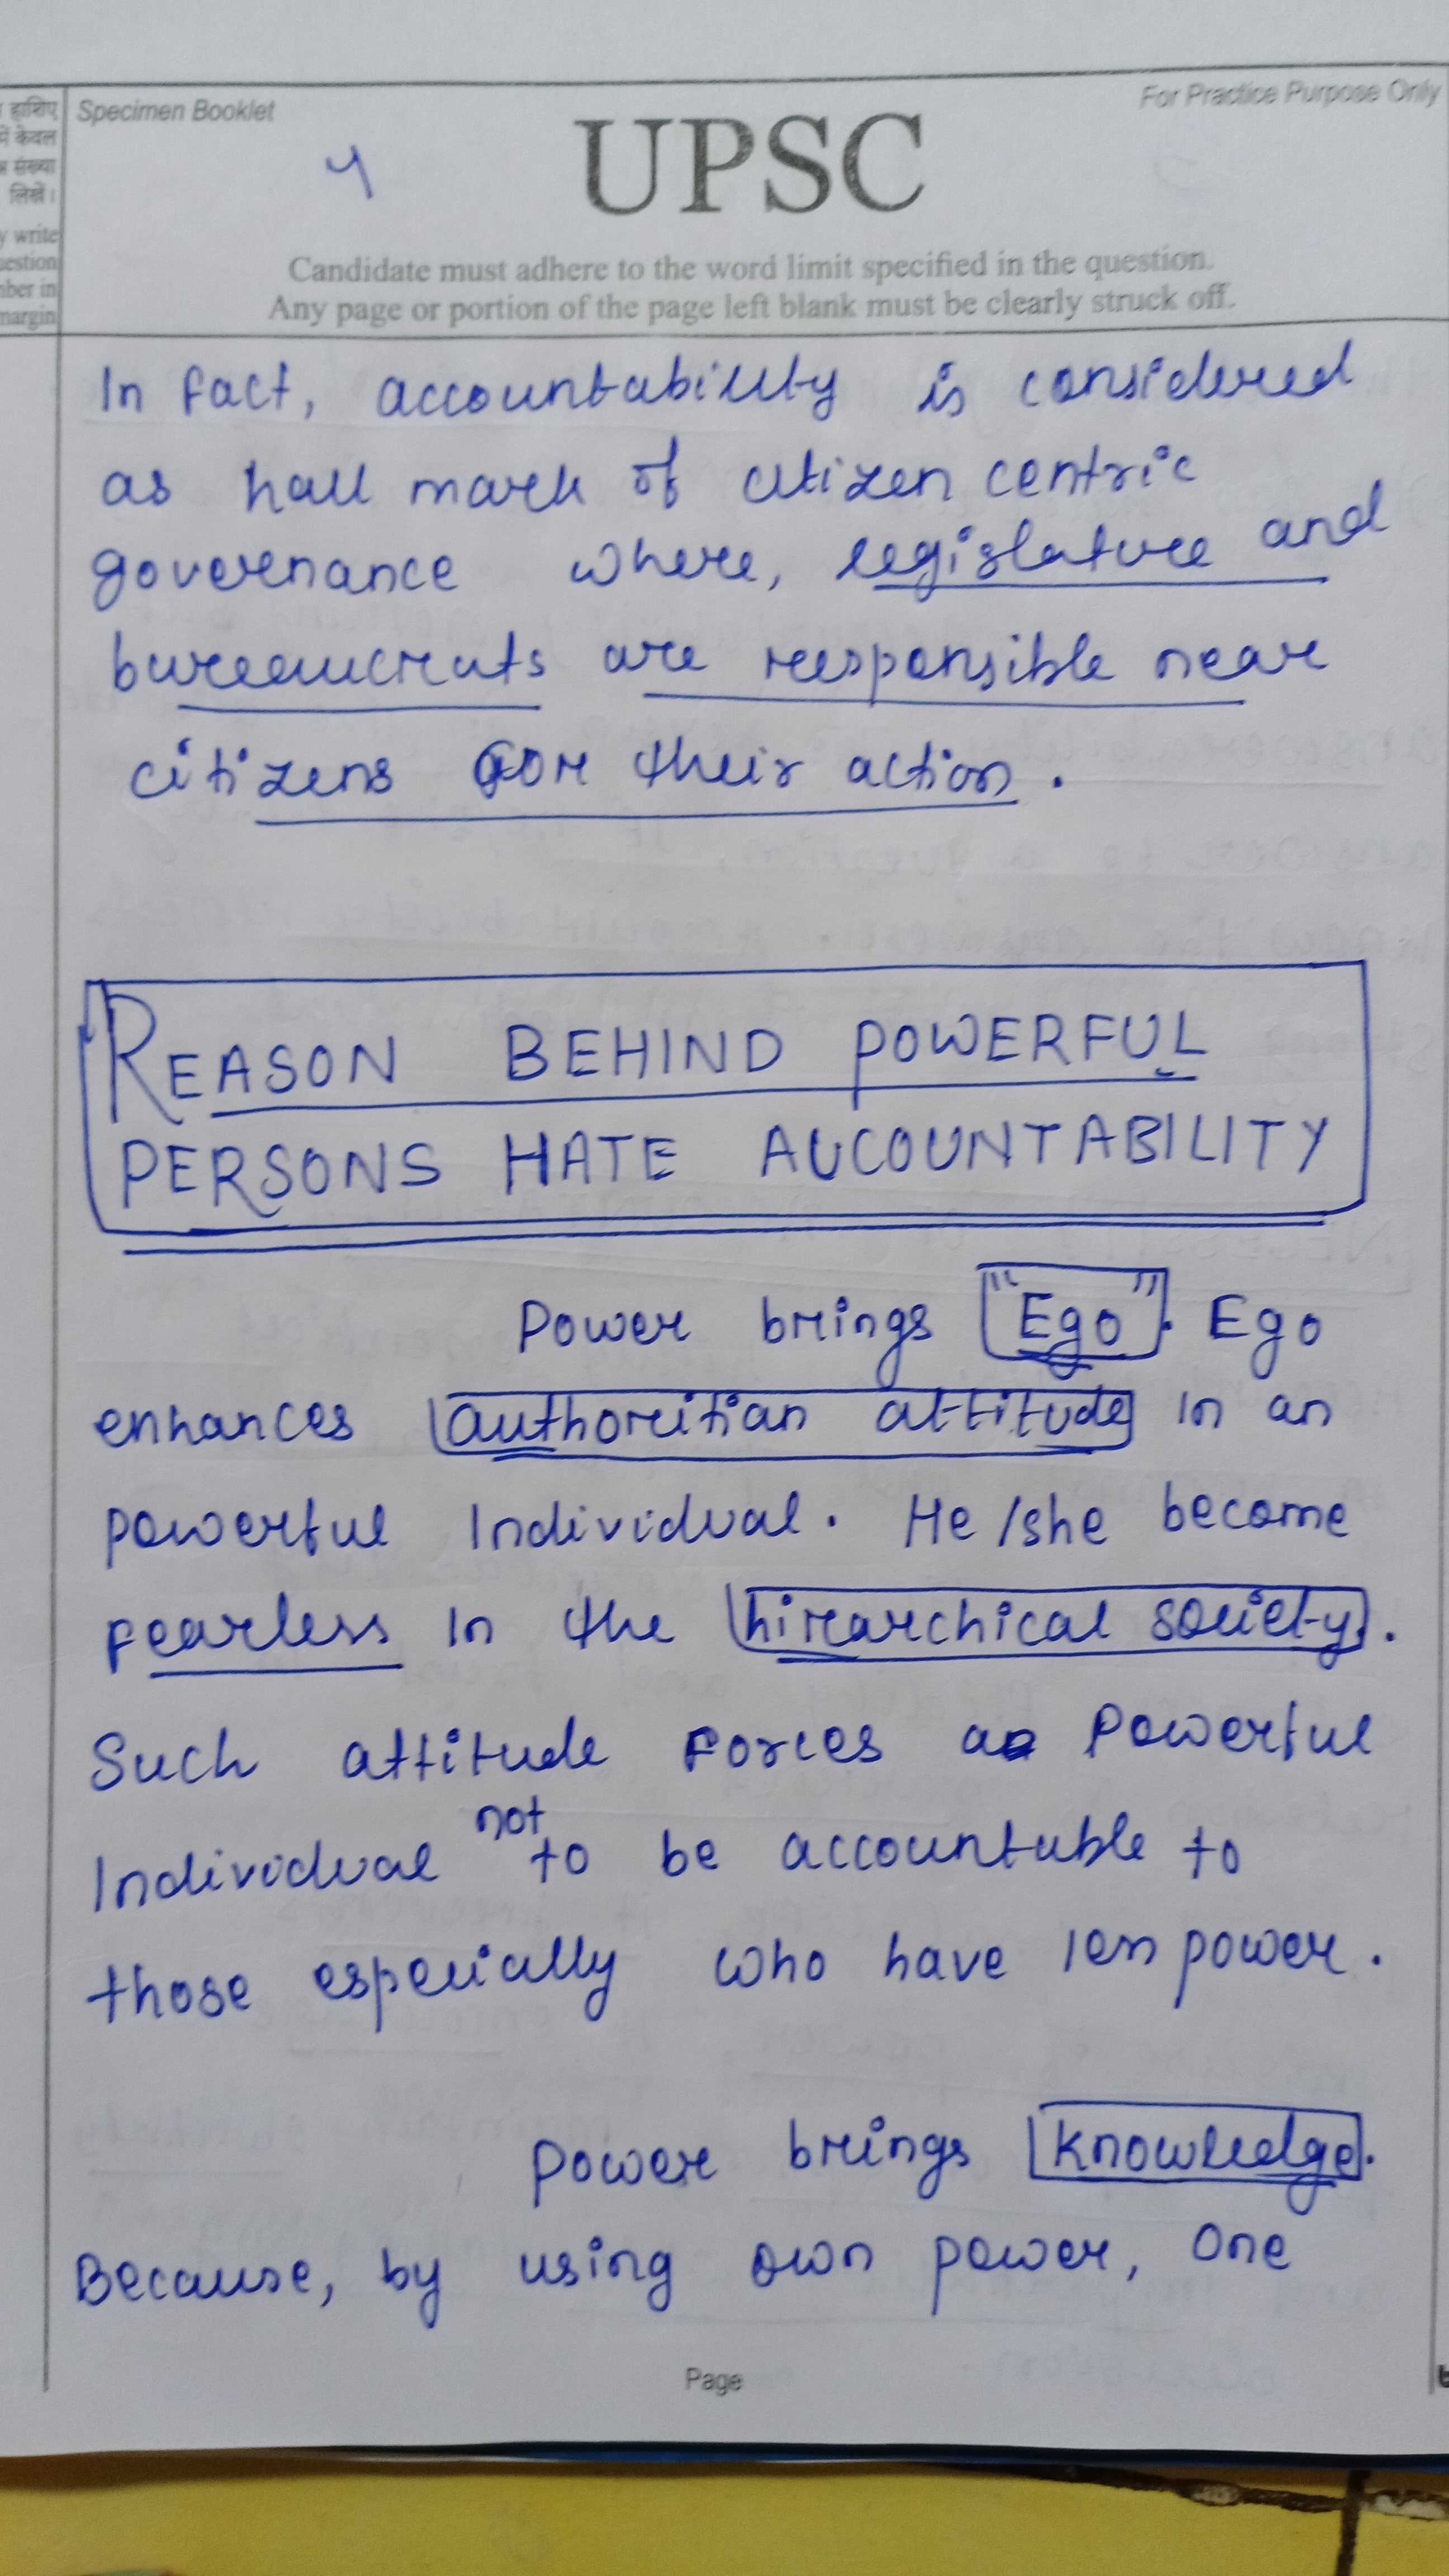 हाशिए
में केवल
संख्या
लिखें।
write
margin
Specimen Booklet
For Practice Purpose Only
4
UPSC
Candidate must adhere to the word limit specified in the question.
Any page or portion of the page left blank must be clearly struck off.
In fact, accountability is considered
as hall mark of citizen centric
governance where, legislature and
bureaucrats are responsible near
citizens for their action.
REASON BEHIND POWERFUL
PERSONS HATE ACCOUNTABILITY
Power brings "Ego". Ego
enhances authoritian attitude in an
powerful Individual. He/she become
fearless in the hirarchical society.
Such attitude forces a powerful
Individual not to be accountable to
those especially who have less power.
Power brings knowledge.
Because, by using own power, one
Page